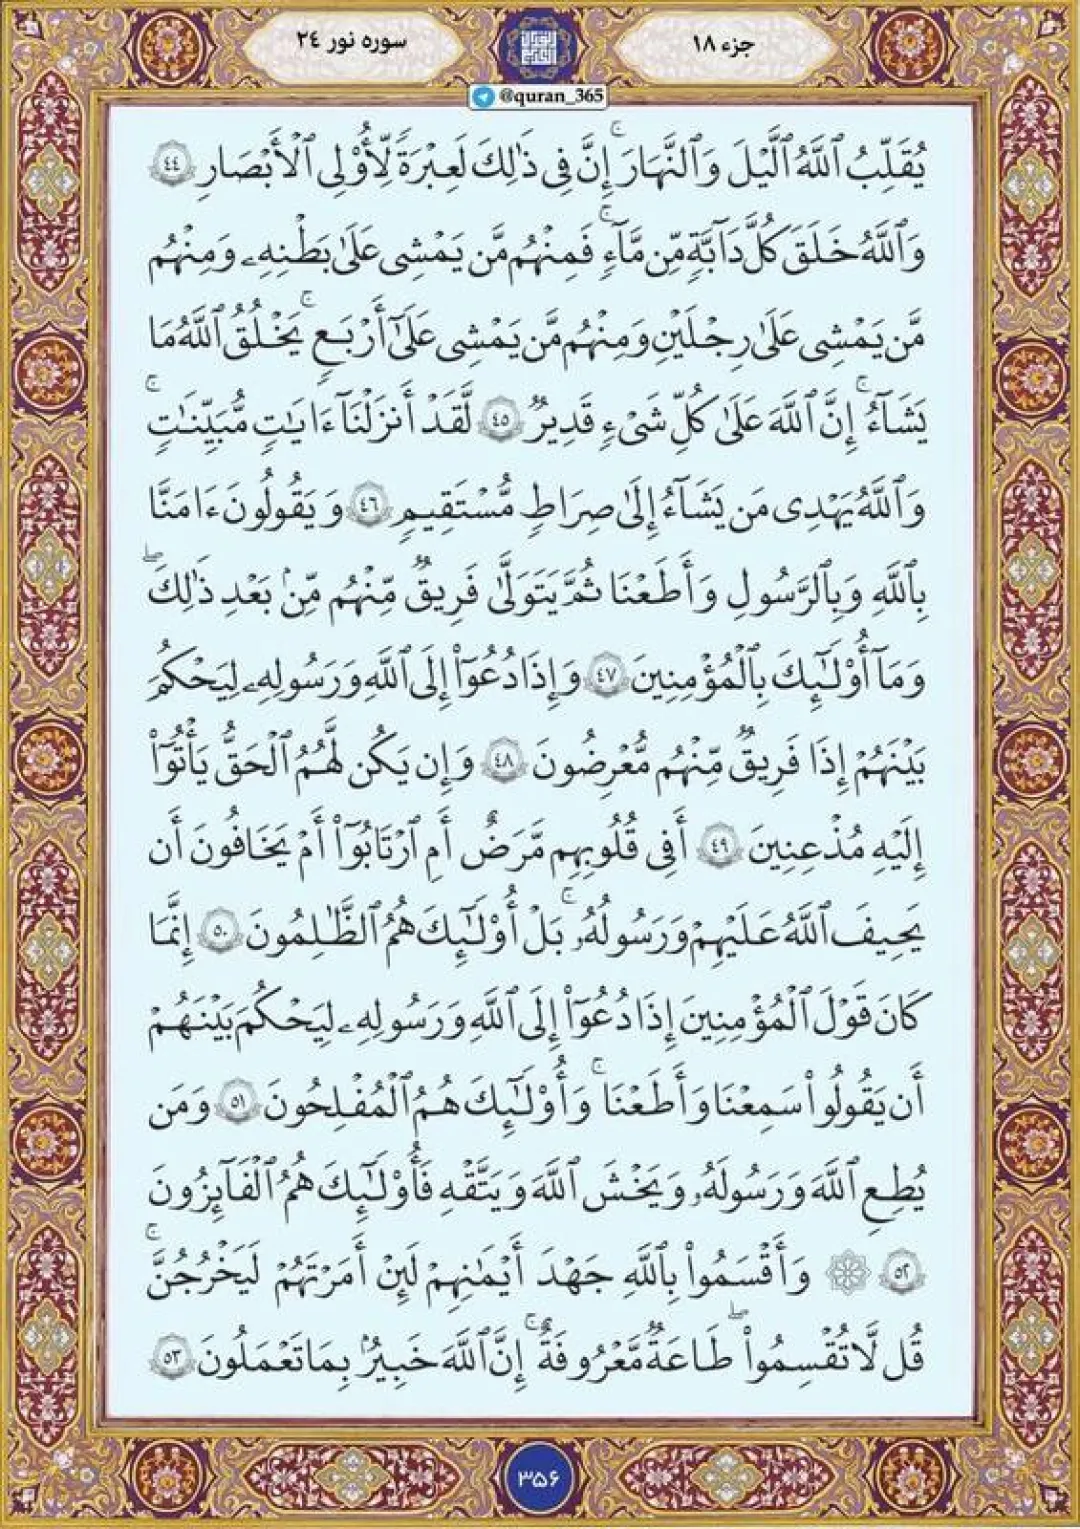 جزء ۱۸
سوره نور ۲۴
@quran_365
يُقَلِّبُ ٱللَّهُ ٱلَّيۡلَ وَٱلنَّهَارَۚ إِنَّ فِى ذَٰلِكَ لَعِبۡرَةً لِّأُوْلِى ٱلۡأَبۡصَٰرِ ٤٤
وَٱللَّهُ خَلَقَ كُلَّ دَآبَّةٍ مِّن مَّآءٍۚ فَمِنۡهُم مَّن يَمۡشِى عَلَىٰ بَطۡنِهِۦ وَمِنۡهُم
مَّن يَمۡشِى عَلَىٰ رِجۡلَيۡنِ وَمِنۡهُم مَّن يَمۡشِى عَلَىٰٓ أَرۡبَعٍۚ يَخۡلُقُ ٱللَّهُ مَا
يَشَآءُۚ إِنَّ ٱللَّهَ عَلَىٰ كُلِّ شَىۡءٍ قَدِيرٌ ٤٥ لَّقَدۡ أَنزَلۡنَآ ءَايَٰتٍ مُّبَيِّنَٰتٍۚ
وَٱللَّهُ يَهۡدِى مَن يَشَآءُ إِلَىٰ صِرَاطٍ مُّسۡتَقِيمٍ ٤٦ وَيَقُولُونَ ءَامَنَّا
بِٱللَّهِ وَبِٱلرَّسُولِ وَأَطَعۡنَا ثُمَّ يَتَوَلَّىٰ فَرِيقٌ مِّنۡهُم مِّنۢ بَعۡدِ ذَٰلِكَۖ
وَمَآ أُوْلَٰٓئِكَ بِٱلۡمُؤۡمِنِينَ ٤٧ وَإِذَا دُعُوٓاْ إِلَى ٱللَّهِ وَرَسُولِهِۦ لِيَحۡكُمَ
بَيۡنَهُمۡ إِذَا فَرِيقٌ مِّنۡهُم مُّعۡرِضُونَ ٤٨ وَإِن يَكُن لَّهُمُ ٱلۡحَقُّ يَأۡتُوٓاْ
إِلَيۡهِ مُذۡعِنِينَ ٤٩ أَفِى قُلُوبِهِم مَّرَضٌ أَمِ ٱرۡتَابُوٓاْ أَمۡ يَخَافُونَ أَن
يَحِيفَ ٱللَّهُ عَلَيۡهِمۡ وَرَسُولُهُۥۚ بَلۡ أُوْلَٰٓئِكَ هُمُ ٱلظَّٰلِمُونَ ٥٠ إِنَّمَا
كَانَ قَوۡلَ ٱلۡمُؤۡمِنِينَ إِذَا دُعُوٓاْ إِلَى ٱللَّهِ وَرَسُولِهِۦ لِيَحۡكُمَ بَيۡنَهُمۡ
أَن يَقُولُواْ سَمِعۡنَا وَأَطَعۡنَاۚ وَأُوْلَٰٓئِكَ هُمُ ٱلۡمُفۡلِحُونَ ٥١ وَمَن
يُطِعِ ٱللَّهَ وَرَسُولَهُۥ وَيَخۡشَ ٱللَّهَ وَيَتَّقۡهِ فَأُوْلَٰٓئِكَ هُمُ ٱلۡفَآئِزُونَ
٥٢ ۞ وَأَقۡسَمُواْ بِٱللَّهِ جَهۡدَ أَيۡمَٰنِهِمۡ لَئِنۡ أَمَرۡتَهُمۡ لَيَخۡرُجُنَّۚ
قُل لَّا تُقۡسِمُواْۖ طَاعَةٌ مَّعۡرُوفَةٌۚ إِنَّ ٱللَّهَ خَبِيرُۢ بِمَا تَعۡمَلُونَ ٥٣
۳۵۶